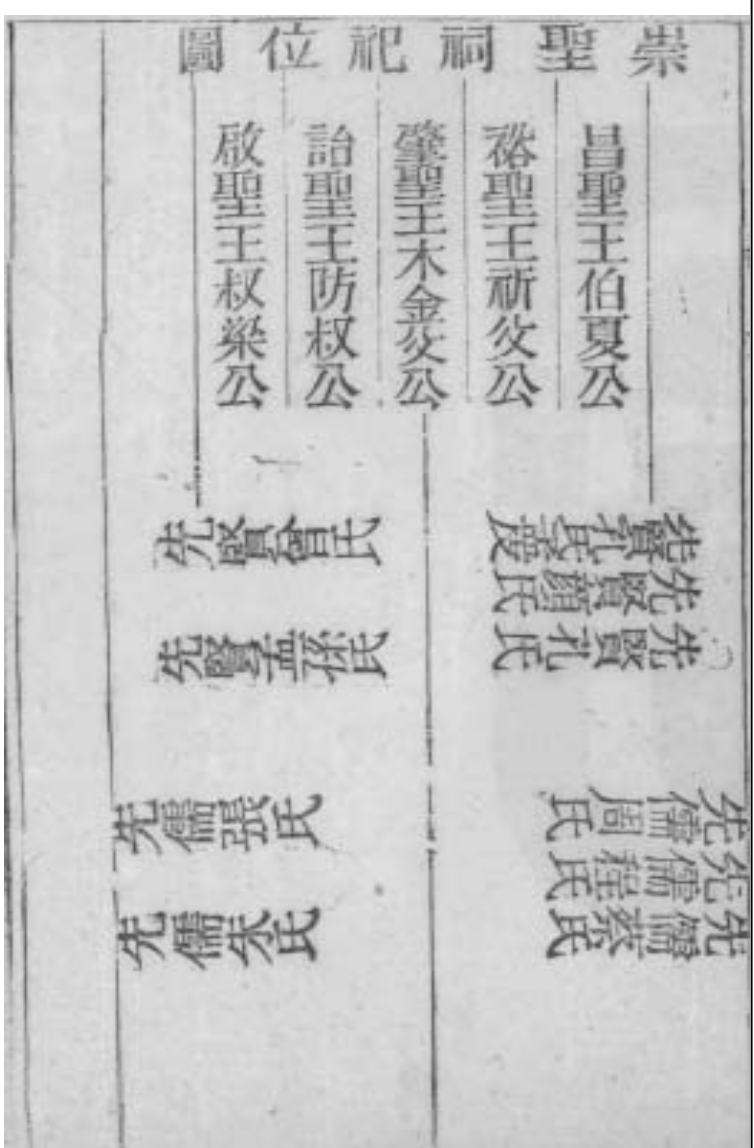 崇聖祠祀位圖
昌聖王伯夏公
裕聖王祈父公
肇聖王木金父公
詒聖王防叔公
啟聖王叔梁公
先賢孔氏
先賢顏氏
先賢孔氏
先賢曾氏
先賢孟孫氏
先儒周氏
先儒程氏
先儒蔡氏
先儒張氏
先儒朱氏